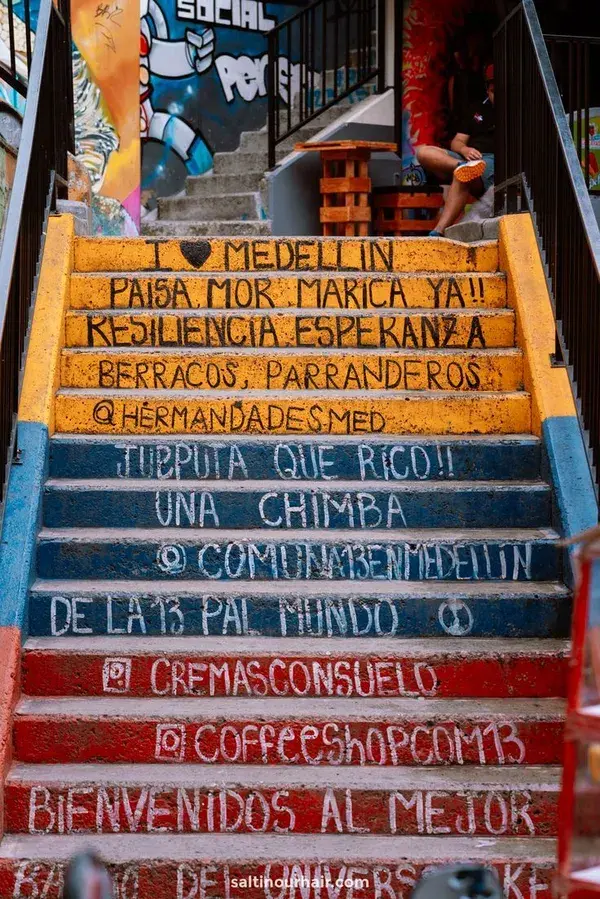 SOCIAL
I ♥ MEDELLIN
PAISA MOR MARICA YA!!
RESILIENCIA ESPERANZA
BERRACOS, PARRANDEROS
@HERMANDADESMED
JUEPUTA QUE RICO!!
UNA CHIMBA
@COMUNA13ENMEDELLIN
DE LA 13 PAL MUNDO
CREMASCONSUELO
COFFEESHOPCOM13
BIENVENIDOS AL MEJOR
DEL
saltinourhair.com